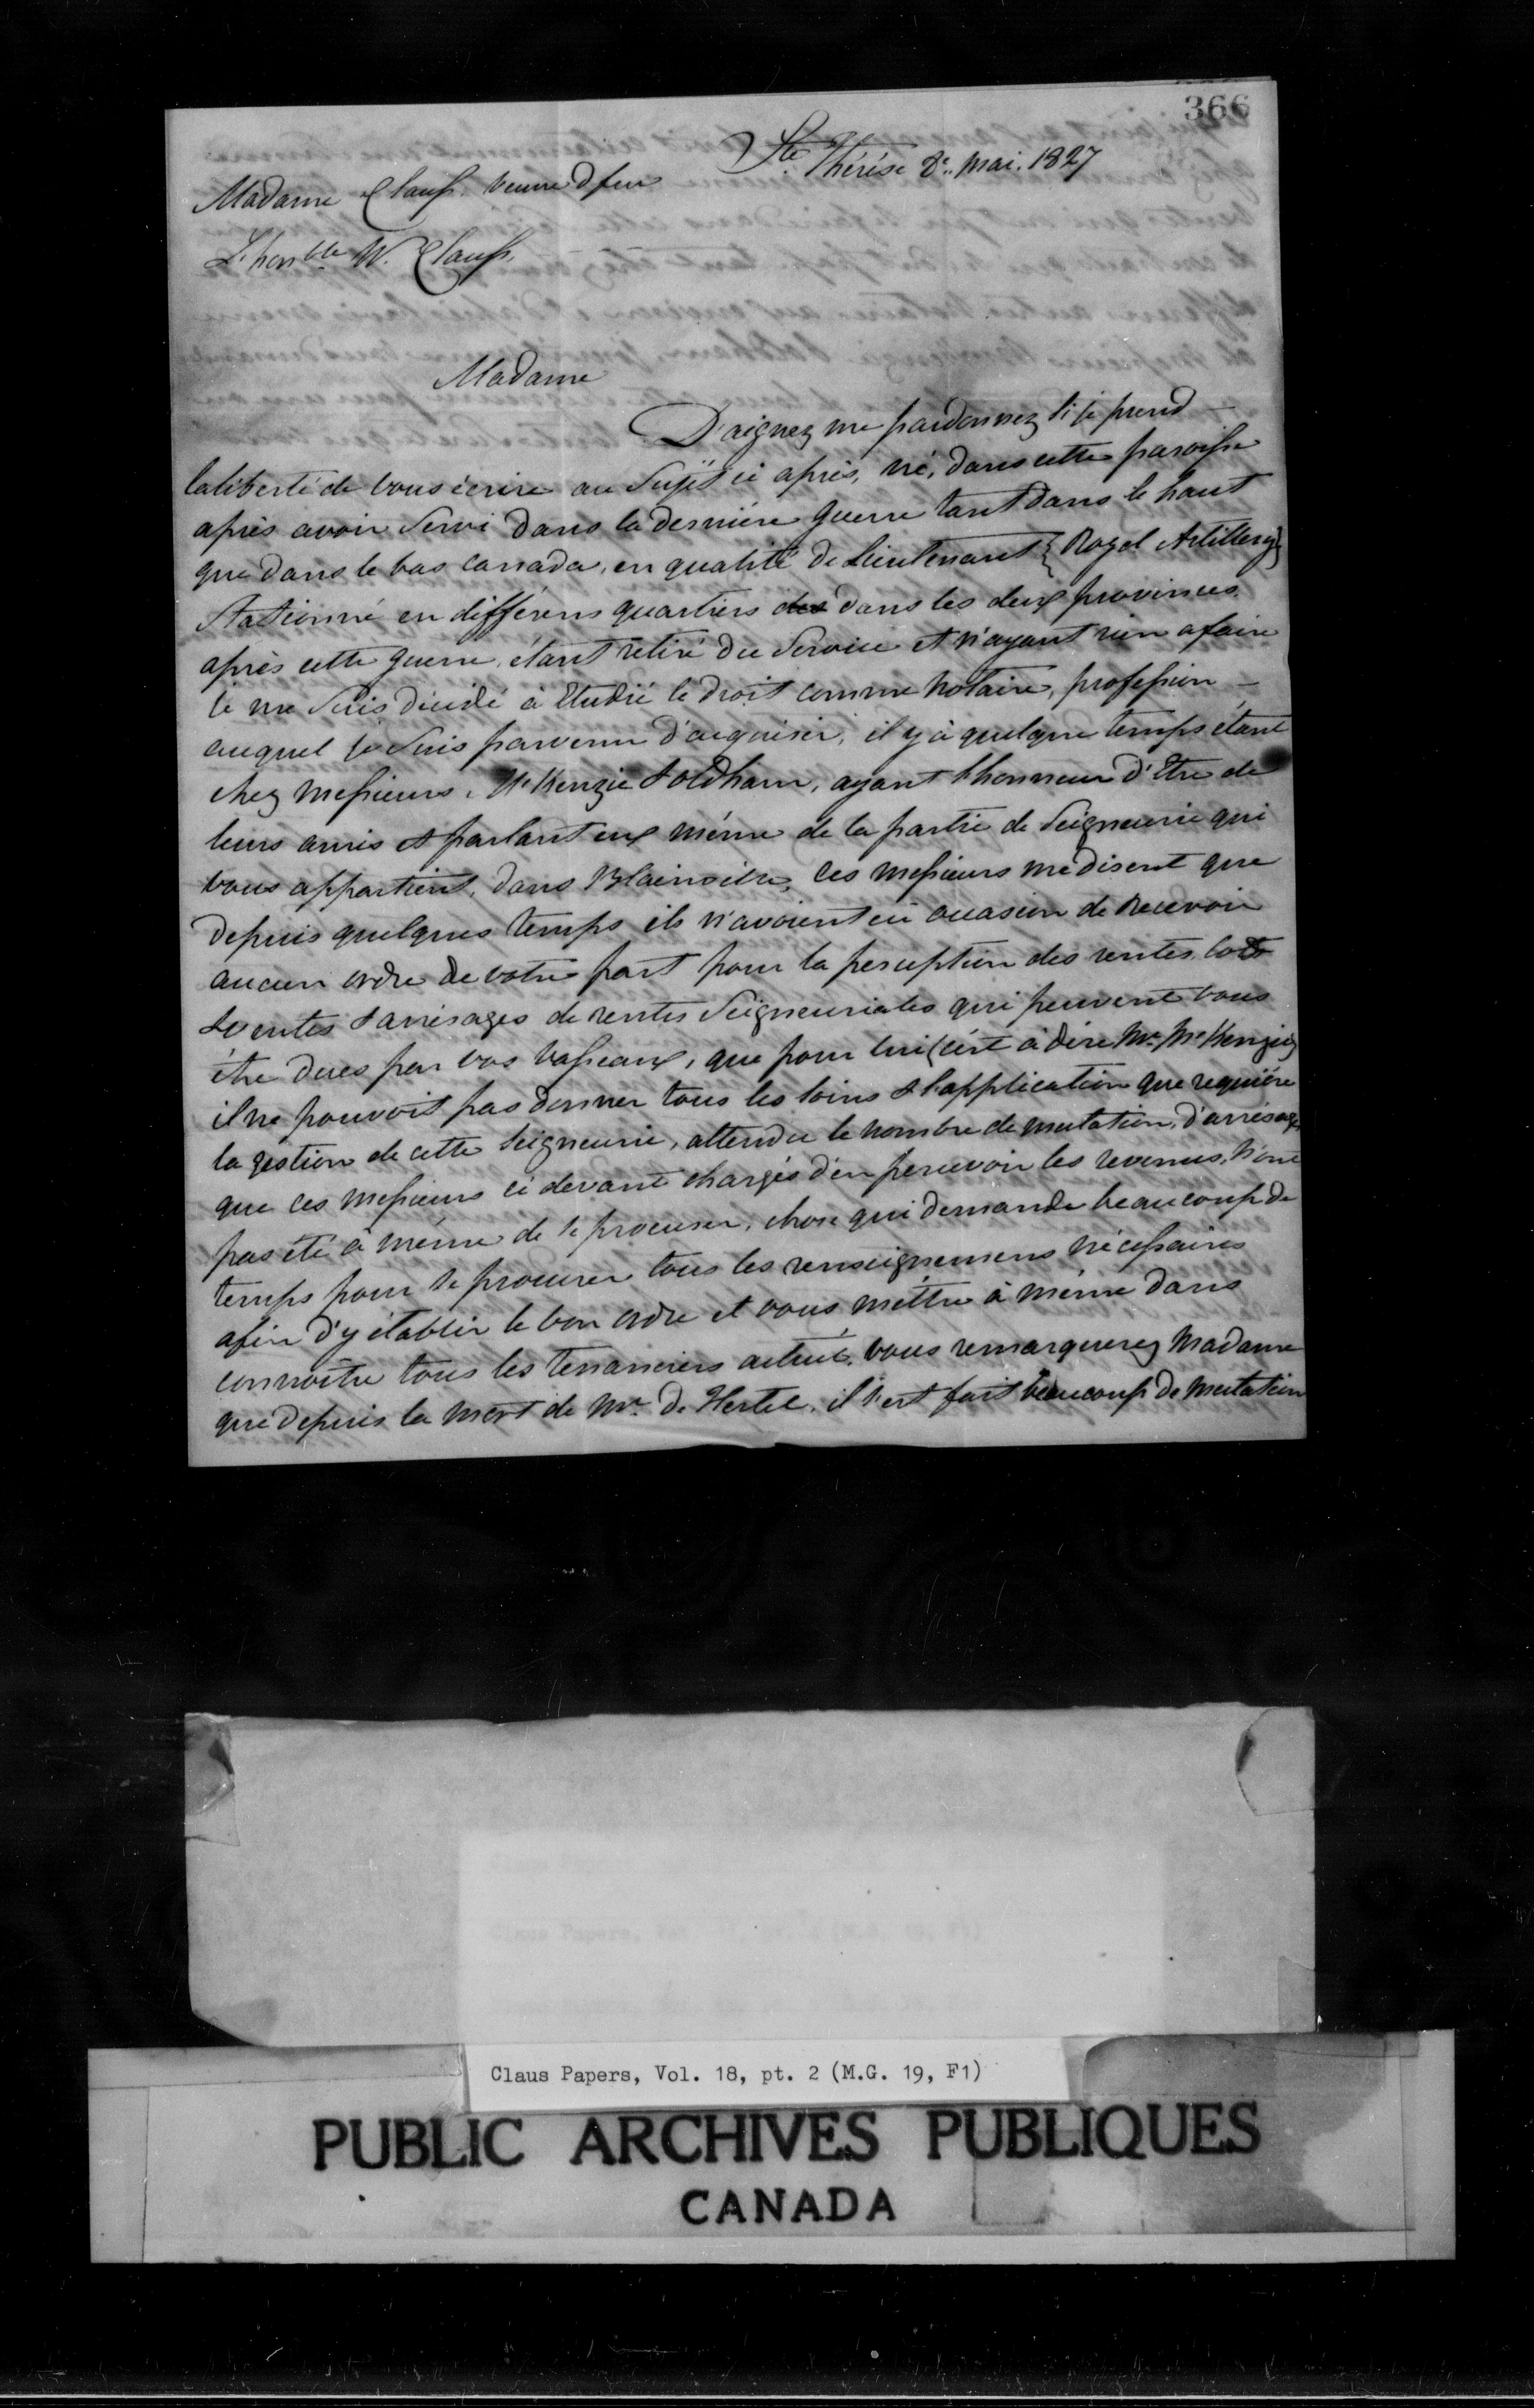 366
Ste Thérése 8e. mai. 1827
Madame Clauss. veuve d feu
L'honble W. Clauss.
Madame
D'aignez me pardonnez si je prend
la liberté de vous écrire au Sujèt ci après, né, dans cette paroisse
après avoir Servi dans la dernière guerre tant dans le haut
que dans le bas canada, en qualité de Lieutenant { Royal Artillery}
Stationné en différens quartiers des dans les deux provinces
après cette guerre, étant retiré du Service et n'ayant rien a faire
je me Suis décidé à Etudié le droit comme Notaire, profession
auquel je Suis parvenu d'acquérir, il y à quelque temps étant
chez messieurs, McKenzie & Oldham, ayant l'honneur d'Etre de
leurs amis & parlant eux même de la partie de Seigneurie qui
vous appartient, dans Blainville, ces messieurs me disent que
depuis quelques temps ils n'avoient eü occasion de recevoir
aucun ordre de votre part pour la perception des rentes, lods
& ventes & arrérages de rentes Seigneuriales qui peuvent vous
être dues par vos vasseaux, que pour lui (c'est à dire Mr. McKenzie)
il ne pouvoit pas donner tous les soins & l'application que requière
la gestion de cette Seigneurie, attendu le nombre de mutation, d'arrérages
que ces messieurs ci devant chargés d'en percevoir les revenus, n'ont
pas été à même de se procurer, chose qui demande beaucoup de
temps pour se procurer tous les renseignemens nécessaires
afin d'y établir le bon ordre et vous mettre à même dans
connoitre tous les Tenanciers actuels, vous remarquerez Madame
que depuis la mort de Mr. De Hertel, il s'est fait beaucoup de mutation
Claus Papers, Vol. 18, pt. 2 (M.G. 19, F1)
PUBLIC ARCHIVES PUBLIQUES
CANADA